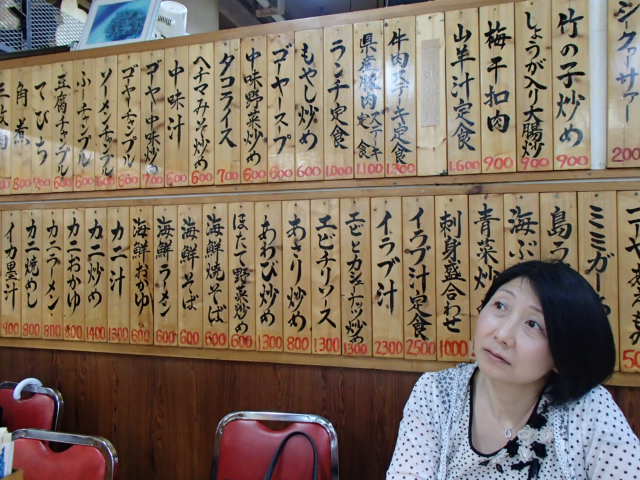 シークヮーサー 200
竹の子炒め 900
しょうが入り大腸炒 900
梅干扣肉 900
山羊汁定食 1,600
牛肉ステーキ定食
県産豚肉ステーキ定食 1,100
ランチ定食 1,000
もやし炒め 600
ゴーヤースープ 600
中味野菜炒め 800
タコライス
ヘチマみそ炒め
中味汁
ゴーヤー中味炒め
ゴーヤーチャンプル
ソーメンチャンプル
ふーチャンプル
豆腐チャンプル
てびち
角煮
三枚肉
ミミガー
島ら
海ぶ
青菜炒
刺身盛合わせ 1000
イラブ汁定食 2500
イラブ汁 2300
エビとカシューナッツ炒め 1300
エビチリソース 1300
あさり炒め 800
あわび炒め 1300
ほたて野菜炒め 600
海鮮焼そば 600
海鮮そば 600
海鮮ラーメン 600
海鮮おかゆ 600
カニ汁 1300
カニ炒め 1400
カニおかゆ 800
カニラーメン 800
カニ焼めし 800
イカ墨汁 900